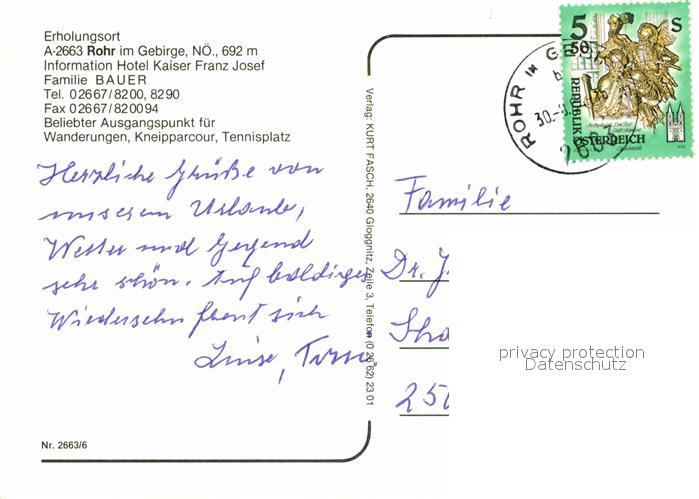 Erholungsort
A-2663 Rohr im Gebirge, NÖ., 692 m
Information Hotel Kaiser Franz Josef
Familie BAUER
Tel. 02667/8200, 8290
Fax 02667/820094
Beliebter Ausgangspunkt für
Wanderungen, Kneipparcour, Tennisplatz
Herzliche Grüße von
unserem Urlaub,
Wetter und Gegend
sehr schön. Auf baldiges
Wiedersehn freut sich
Luise,
Nr. 2663/6
Verlag: KURT FASCH, 2640 Gloggnitz, Zeile 3, Telefon (0 26 62) 23 01
ROHR IM GE
30.
2663
5 50 S
REPUBLIK ÖSTERREICH
Familie
Dr. J.
250
privacy protection
Datenschutz